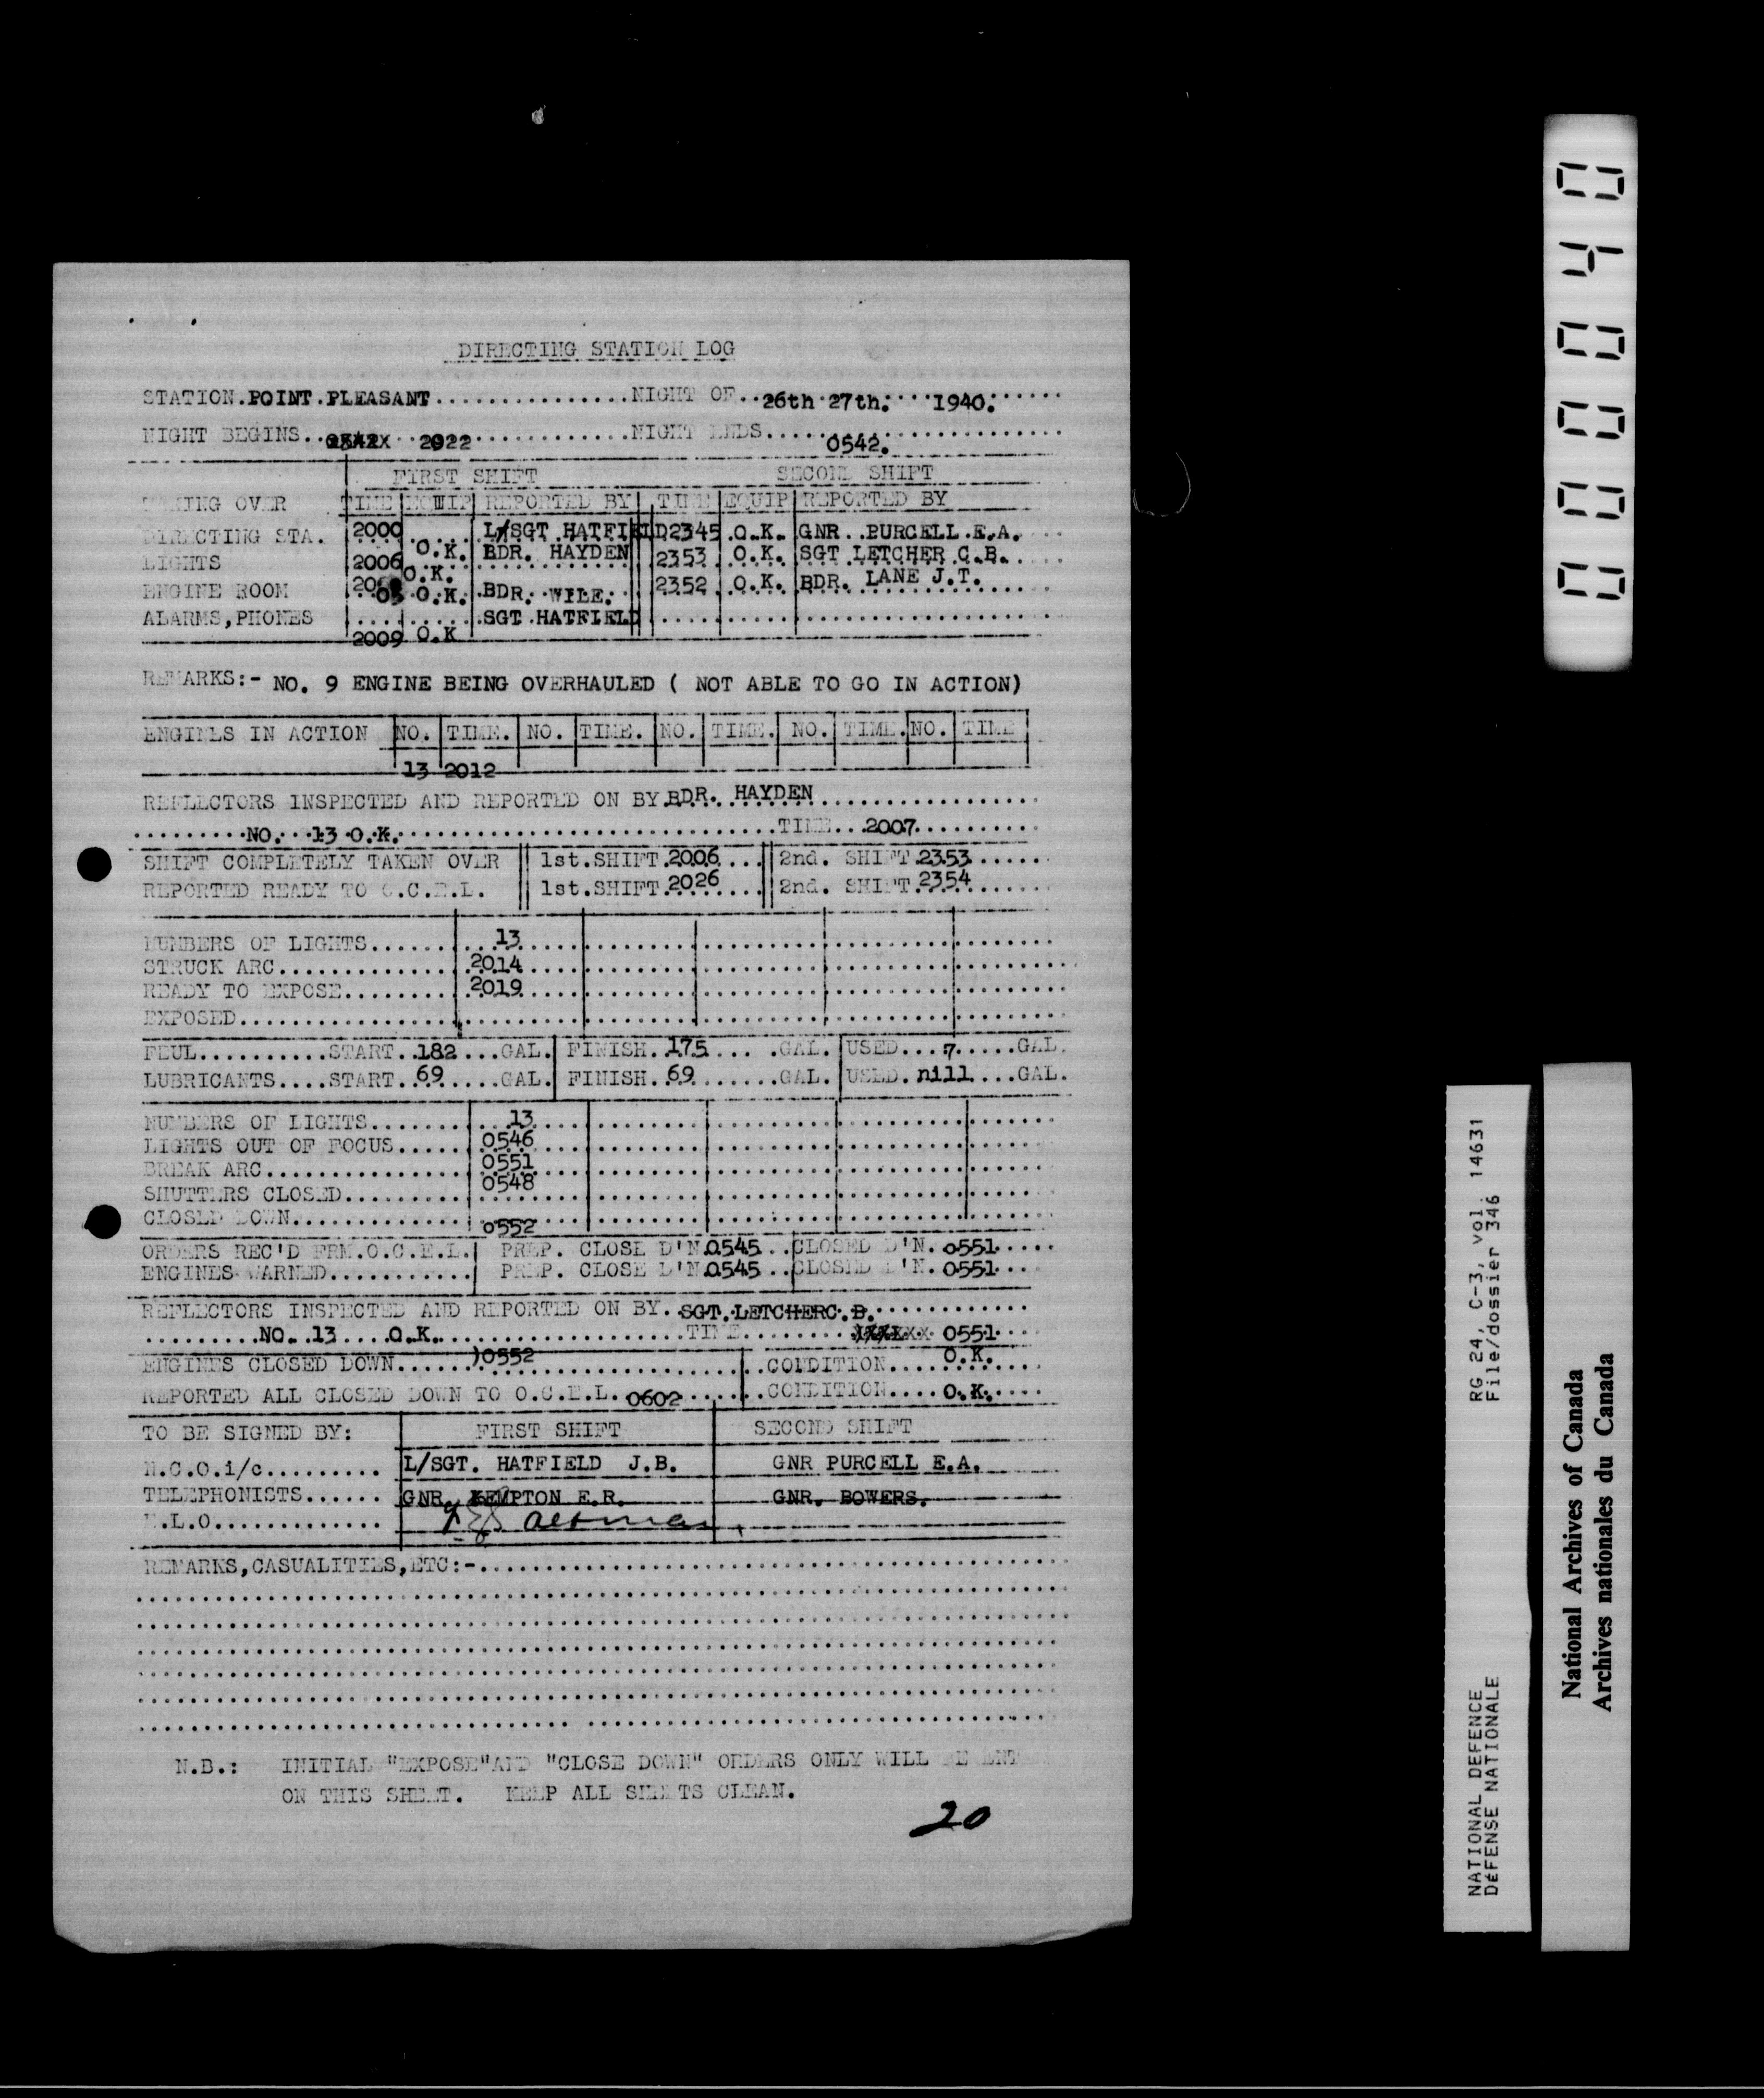 DIRECTING STATION LOG
STATION.POINT.PLEASANT................NIGHT OF..26th 27th. 1940.
NIGHT BEGINS.. 2022 ..............NIGHT ENDS.....0542.
FIRST SHIFT SECOND SHIFT
TAKING OVER TIME EQUIP REPORTED BY TIME EQUIP REPORTED BY
DIRECTING STA. 2000 O.K. L/SGT HATFIELD 2345 O.K. GNR..PURCELL.E.A.
LIGHTS 2006 O.K. BDR. HAYDEN 2353 O.K. SGT LETCHER C.B.
ENGINE ROOM 2005 O.K. BDR. WILE. 2352 O.K. BDR. LANE J.T.
ALARMS,PHONES 2009 O.K SGT HATFIELD
REMARKS:- NO. 9 ENGINE BEING OVERHAULED ( NOT ABLE TO GO IN ACTION)
ENGINES IN ACTION NO. TIME. NO. TIME. NO. TIME. NO. TIME. NO. TIME
13 2012
REFLECTORS INSPECTED AND REPORTED ON BY.BDR. HAYDEN
NO. 13 O.K. TIME...2007
SHIFT COMPLETELY TAKEN OVER 1st.SHIFT.2006... 2nd. SHIFT.2353
REPORTED READY TO O.C.E.L. 1st.SHIFT.2026 2nd. SHIFT.2354
NUMBERS OF LIGHTS....... 13
STRUCK ARC.............. 2014
READY TO EXPOSE......... 2019
EXPOSED
FEUL..........START..182...GAL. FINISH.175.... .GAL. USED...7.....GAL.
LUBRICANTS....START..69.....GAL. FINISH.69.......GAL. USED.nill....GAL.
NUMBERS OF LIGHTS....... 13
LIGHTS OUT OF FOCUS..... 0546
BREAK ARC............... 0551
SHUTTERS CLOSED......... 0548
CLOSED DOWN............. 0552
ORDERS REC'D FRM.O.C.E.L. PREP. CLOSE D'N.0545..CLOSED D'N.0551
ENGINES WARNED........... PREP. CLOSE D'N.0545..CLOSED D'N.0551
REFLECTORS INSPECTED AND REPORTED ON BY. SGT.LETCHERC.B.
.........NO. 13....O.K. TIME......... 0551
ENGINES CLOSED DOWN......)0552 CONDITION....O.K.
REPORTED ALL CLOSED DOWN TO O.C.E.L. 0602 CONDITION....O.K.
TO BE SIGNED BY: FIRST SHIFT SECOND SHIFT
N.C.O.i/c......... L/SGT. HATFIELD J.B. GNR PURCELL E.A.
TELEPHONISTS...... GNR. KEMPTON E.R. GNR. BOWERS.
E.L.O.............
REMARKS,CASUALITIES,ETC:-
N.B.: INITIAL "EXPOSE"AND "CLOSE DOWN" ORDERS ONLY WILL BE ENT
ON THIS SHEET. KEEP ALL SHEETS CLEAN.
20
000040
RG 24, C-3, vol. 14631
File/dossier 346
NATIONAL DEFENCE
DÉFENSE NATIONALE
National Archives of Canada
Archives nationales du Canada